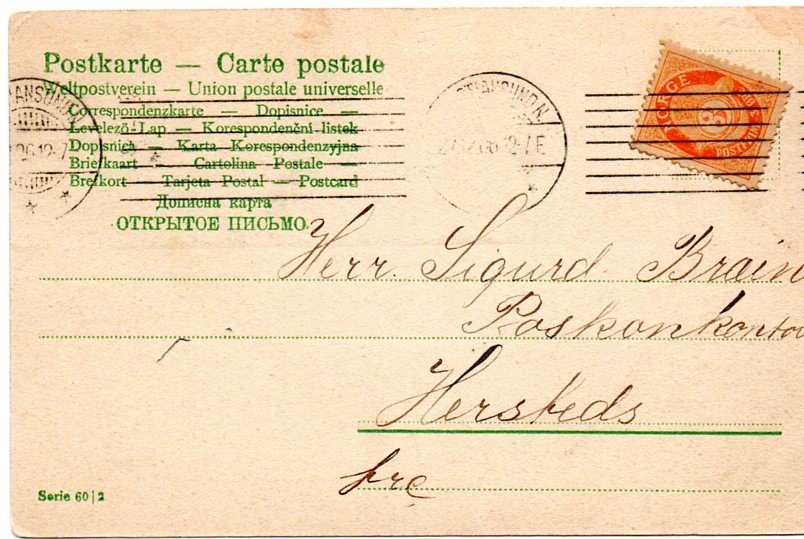 Postkarte — Carte postale
Weltpostverein — Union postale universelle
Correspondenzkarte — Dopisnice —
Levelező-Lap — Korespondenční listek
Dopisnica — Karta Korespondenzyjna
Briefkaart — Cartolina Postale —
Brefkort — Tarjeta Postal — Postcard
Дописна карта
ОТКРЫТОЕ ПИСЬМО
NORGE
3
POSTFRIM
Herr. Sigurd Brain
Poskonkontor
Hersteds
Serie 60|2